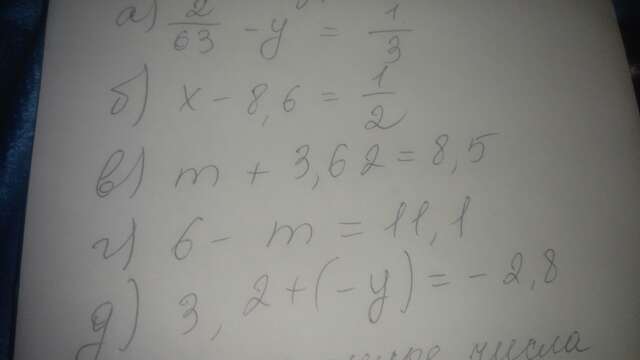 а) 2/63 - y = 1/3
б) x - 8,6 = 1/2
в) m + 3,62 = 8,5
г) 6 - m = 11,1
д) 3,2 + (-y) = -2,8
числа